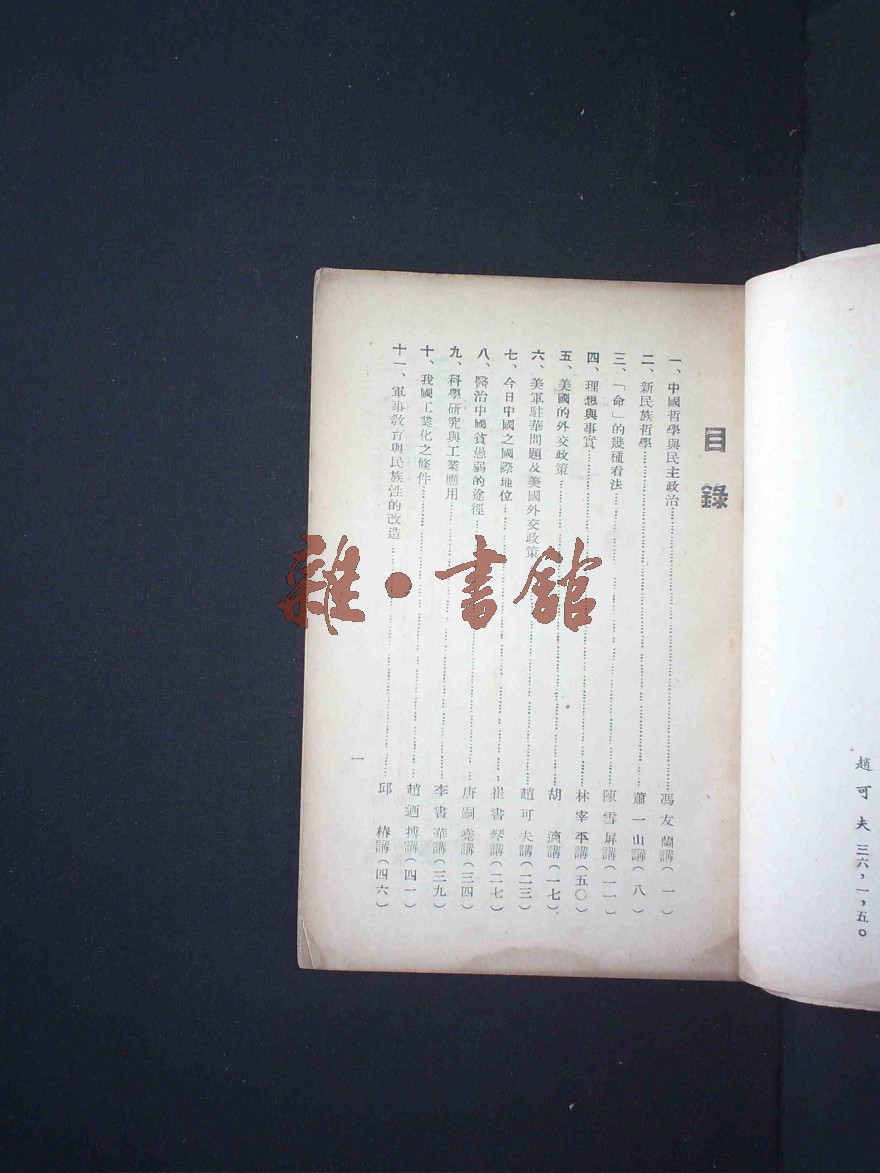 趙可夫 三六，一，五。
目錄
一、中國哲學與民主政治……馮友蘭講（一）
二、新民族哲學……蕭一山講（八）
三、「命」的幾種看法……陳雪屏講（一一）
四、理想與事實……林宰平講（五〇）
五、美國的外交政策……胡適講（一七）
六、美軍駐華問題及美國外交政策……趙可夫講（二三）
七、今日中國之國際地位……崔書琴講（二七）
八、醫治中國貧愚弱的途徑……唐嗣堯講（三四）
九、科學研究與工業應用……李書華講（三九）
十、我國工業化之條件……趙迺摶講（四一）
十一、軍訓教育與民族性的改造……邱椿講（四六）
一
雜·書館